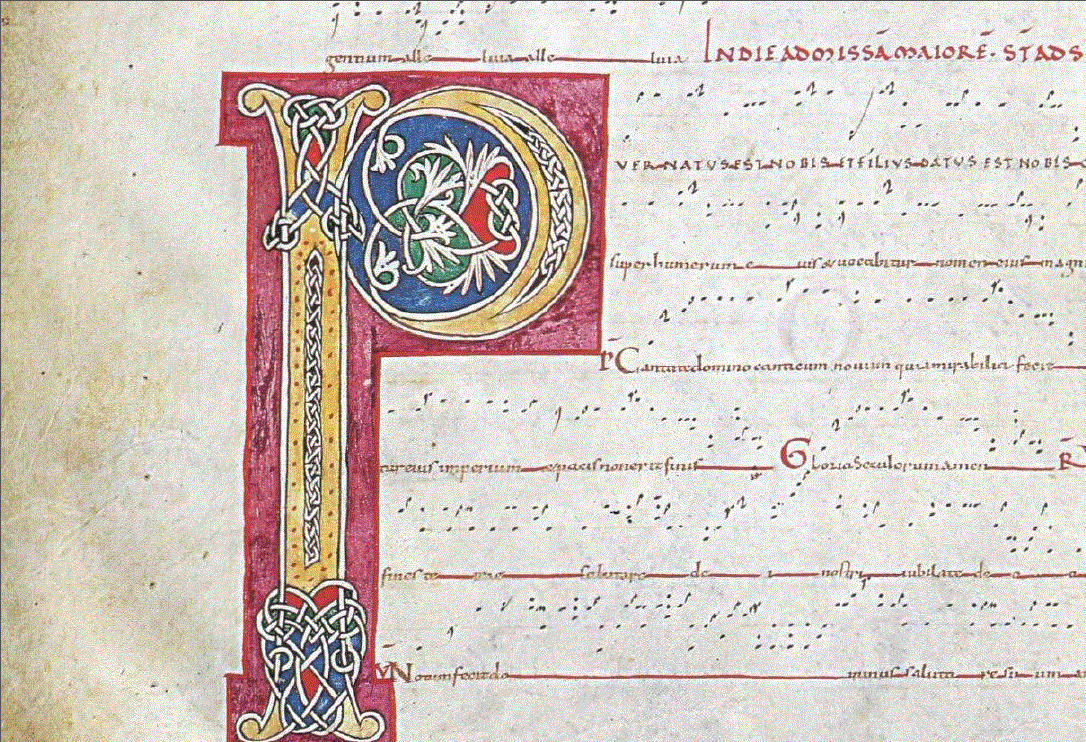 gentium alle luia alle luia INDIE AD MISSĀ MAIORĒ. STAD S
P VER NATVS EST NOBIS ET FILIVS DATVS EST NOBIS
super humerum e ius & uocabitur nomen eius magni
Cantate domino canticum nouum quia mirabilia fecit
cuius imperium Gloria seculorum amen R
fines te rre salutare de i nostri iubilate de o
Notum fecit do minus saluta re su um